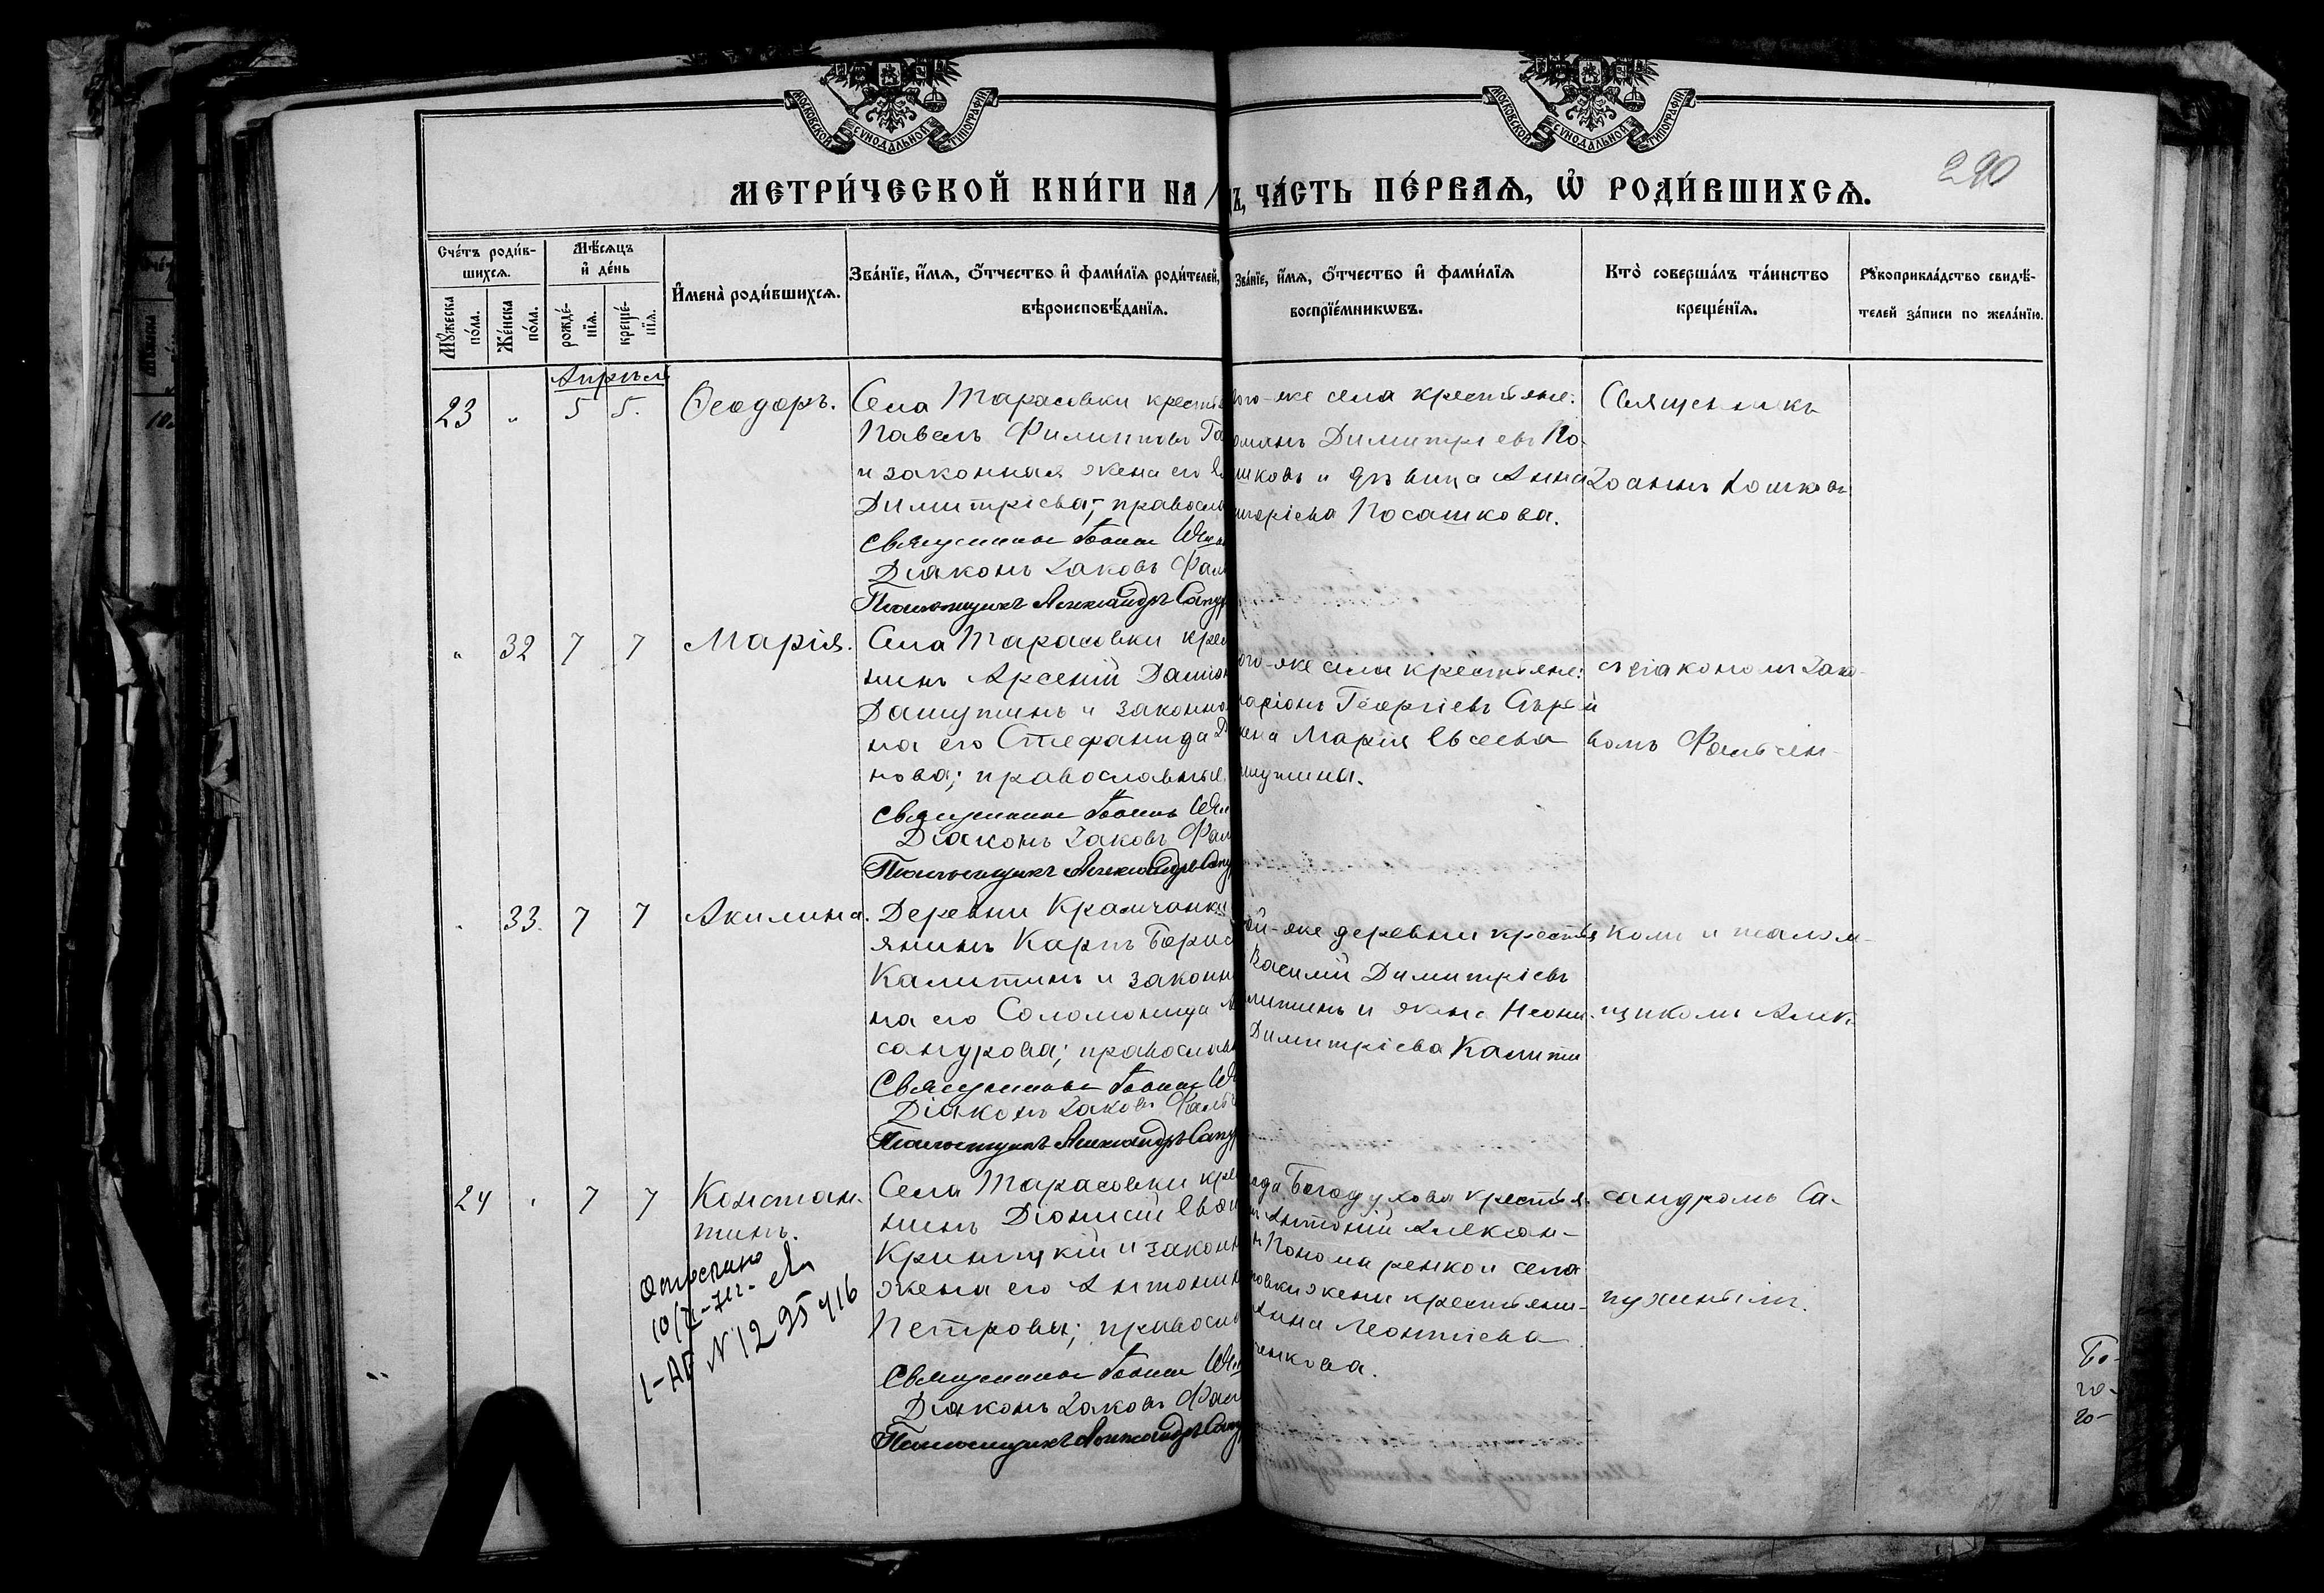 МОСКОВСКОЙ СѴНОДАЛЬНОЙ ТИПОГРАФІИ
МОСКОВСКОЙ СѴНОДАЛЬНОЙ ТИПОГРАФІИ
290
МЕТРИ́ЧЕСКОЙ КНИ́ГИ НА
ЧА́СТЬ ПЕ́РВАѦ, Ѡ҆ РОДИ́ВШИХСѦ.
Сче́тъ роди́в-
шихсѧ.
Мꙋ́жеска по́ла.
Же́нска по́ла.
Мѣ́сѧцъ
и҆ де́нь
рожде́-
нїѧ.
креще́-
нїѧ.
И҆мена̀ роди́вшихсѧ.
Зва́нїе, и҆́мѧ, ѻ҆́тчество и҆ фами́лїѧ роди́телей,
вѣроисповѣ́данїѧ.
Зва́нїе, и҆́мѧ, ѻ҆́тчество и҆ фами́лїѧ
воспрїе́мникѡвъ.
Кто̀ соверша́лъ та́инство
креще́нїѧ.
Рꙋкоприкла́дство свидѣ́-
телей за́писи по жела́нїю.
Апрѣль
23 " 5 5. Ѳеодоръ.
Села Тарасовки крестья
Павелъ Филипповъ Га
и законная жена его
Димитріева; правосла
Священникъ Іоаннъ
Діаконъ Іаковъ Фал
Псаломщикъ Александръ Сапу
ого-же села крестьяне:
Димитріевъ По-
шковъ и дѣвица Анна
игоріева Посашкова.
Священникъ
Іоаннъ
" 32 7 7 Марія.
Села Тарасовки крес
нинъ Арсеній Даміа
Дашутинъ и законна
на его Стефанида
нова; православные
Священникъ Іоаннъ
Діаконъ Іаковъ Фал
Псаломщикъ Александръ Сапу
ого-же села крестьяне:
ларіонъ Георгіевъ
жена Марія Евсеева
шутина.
съ діакономъ Іако-
вомъ Фальчен-
" 33. 7 7 Акилина.
Деревни Крамчанки
янинъ Карпъ Борис
Калитинъ и законн
на его Соломонида
сандрова; православн
Священникъ Іоаннъ
Діаконъ Іаковъ Фальч
Псаломщикъ Александръ Сапу
ой-же деревни крестья
Василій Димитріевъ
литинъ и жена Неони-
Димитріева Калити
комъ и псалом-
щикомъ Алек-
24 " 7 7 Констан-
тинъ.
Села Тарасовки кре
нинъ Діонисій
Криницкій и законн
жена его Антонин
Петрова; правосла
Священникъ Іоаннъ
Діаконъ Іаковъ Фал
Псаломщикъ Александръ Сапу
Богодухова крестья-
Антоній Алексан-
Пономаренко и села
совки жена крестьяни-
Анна Леонтіева
ченкова.
сандромъ Са-
пужинымъ.
N 12 95416
Бо-
го-